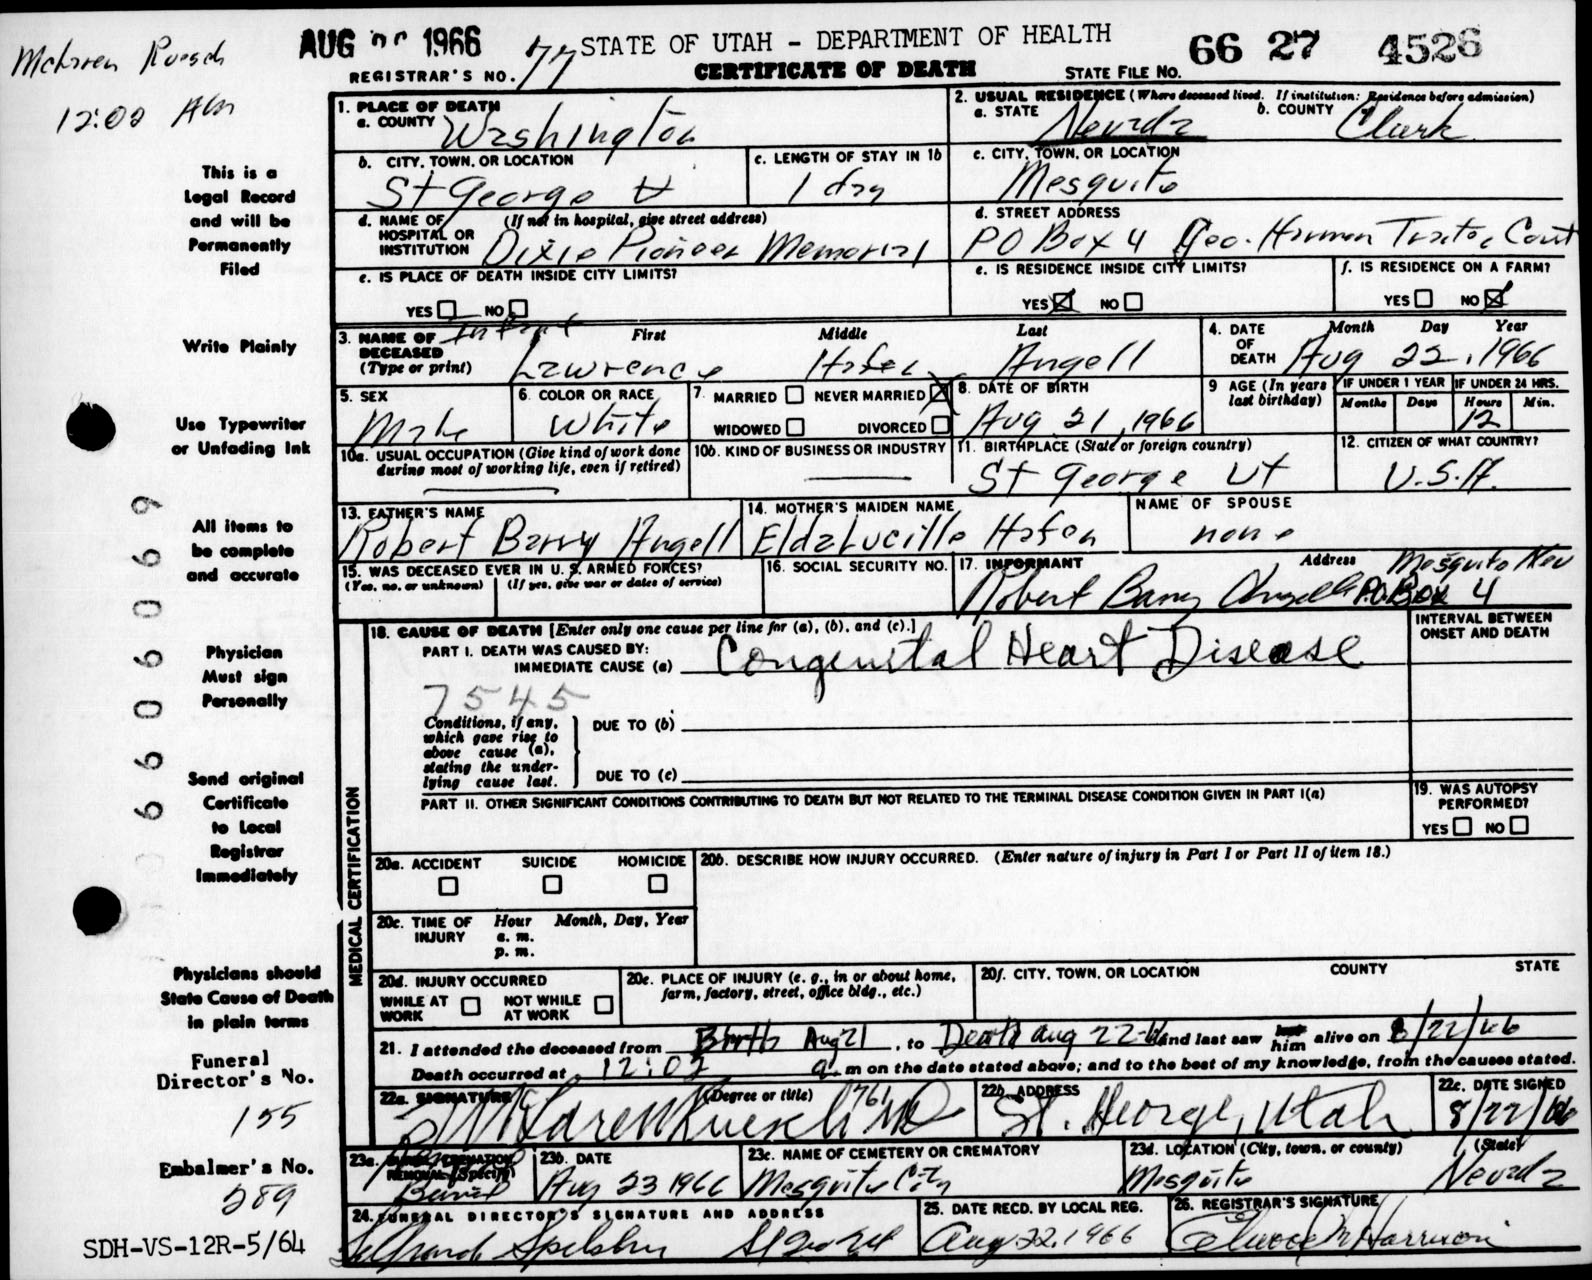 McLaren Ruesch
12:02 AM
AUG 1966
REGISTRAR'S NO. 77
STATE OF UTAH - DEPARTMENT OF HEALTH
CERTIFICATE OF DEATH
STATE FILE NO. 66 27 4526
This is a
Legal Record
and will be
Permanently
Filed
Write Plainly
Use Typewriter
or Unfading Ink
All items to
be complete
and accurate
Physician
Must sign
Personally
Send original
Certificate
to Local
Registrar
Immediately
Physicians should
State Cause of Death
in plain terms
Funeral
Director's No.
155
Embalmer's No.
289
SDH-VS-12R-5/64
1. PLACE OF DEATH
a. COUNTY Washington
2. USUAL RESIDENCE (Where deceased lived. If institution: Residence before admission)
a. STATE Nevada b. COUNTY Clark
b. CITY, TOWN, OR LOCATION St George Ut
c. LENGTH OF STAY IN 1b 1 day
c. CITY, TOWN, OR LOCATION Mesquite
d. NAME OF HOSPITAL OR INSTITUTION (If not in hospital, give street address) Dixie Pioneer Memorial
d. STREET ADDRESS PO Box 4 Geo. Court
e. IS PLACE OF DEATH INSIDE CITY LIMITS?
YES NO
e. IS RESIDENCE INSIDE CITY LIMITS?
YES NO
f. IS RESIDENCE ON A FARM?
YES NO
3. NAME OF DECEASED (Type or print) First Middle Last
Infant Lawrence Hafen Angell
4. DATE OF DEATH Month Day Year
Aug 22, 1966
5. SEX Male
6. COLOR OR RACE White
7. MARRIED NEVER MARRIED
WIDOWED DIVORCED
8. DATE OF BIRTH Aug 21, 1966
9 AGE (In years last birthday)
IF UNDER 1 YEAR Months Days
IF UNDER 24 HRS. Hours Min.
12
10a. USUAL OCCUPATION (Give kind of work done during most of working life, even if retired)
10b. KIND OF BUSINESS OR INDUSTRY
11. BIRTHPLACE (State or foreign country) St George Ut
12. CITIZEN OF WHAT COUNTRY? U.S.A.
13. FATHER'S NAME Robert Barry Angell
14. MOTHER'S MAIDEN NAME Elda Lucille Hafen
NAME OF SPOUSE none
15. WAS DECEASED EVER IN U. S. ARMED FORCES?
(Yes, no, or unknown) (If yes, give war or dates of service)
16. SOCIAL SECURITY NO.
17. INFORMANT Address
Robert Barry Angell Mesquite Nev P.O. Box 4
18. CAUSE OF DEATH [Enter only one cause per line for (a), (b), and (c).]
INTERVAL BETWEEN ONSET AND DEATH
PART I. DEATH WAS CAUSED BY:
IMMEDIATE CAUSE (a) Congenital Heart Disease
7545
Conditions, if any, which gave rise to above cause (a), stating the underlying cause last.
DUE TO (b)
DUE TO (c)
PART II. OTHER SIGNIFICANT CONDITIONS CONTRIBUTING TO DEATH BUT NOT RELATED TO THE TERMINAL DISEASE CONDITION GIVEN IN PART I(a)
19. WAS AUTOPSY PERFORMED?
YES NO
MEDICAL CERTIFICATION
20a. ACCIDENT SUICIDE HOMICIDE
20b. DESCRIBE HOW INJURY OCCURRED. (Enter nature of injury in Part I or Part II of item 18.)
20c. TIME OF INJURY Hour Month, Day, Year
a. m.
p. m.
20d. INJURY OCCURRED
WHILE AT WORK NOT WHILE AT WORK
20e. PLACE OF INJURY (e. g., in or about home, farm, factory, street, office bldg., etc.)
20f. CITY, TOWN, OR LOCATION COUNTY STATE
21. I attended the deceased from Birth Aug 21, to Death Aug 22-66 and last saw him alive on 8/22/66
Death occurred at 12:02 a. m on the date stated above; and to the best of my knowledge, from the causes stated.
22a. SIGNATURE (Degree or title)
McLaren Ruesch MD 761
22b. ADDRESS St. George, Utah
22c. DATE SIGNED 8/22/66
23a. BURIAL, CREMATION REMOVAL (Specify) Burial
23b. DATE Aug 23 1966
23c. NAME OF CEMETERY OR CREMATORY Mesquite City
23d. LOCATION (City, town, or county) (State)
Mesquite Nevada
24. FUNERAL DIRECTOR'S SIGNATURE AND ADDRESS
Spilsbury St George Ut
25. DATE RECD. BY LOCAL REG. Aug 22, 1966
26. REGISTRAR'S SIGNATURE
Harrison